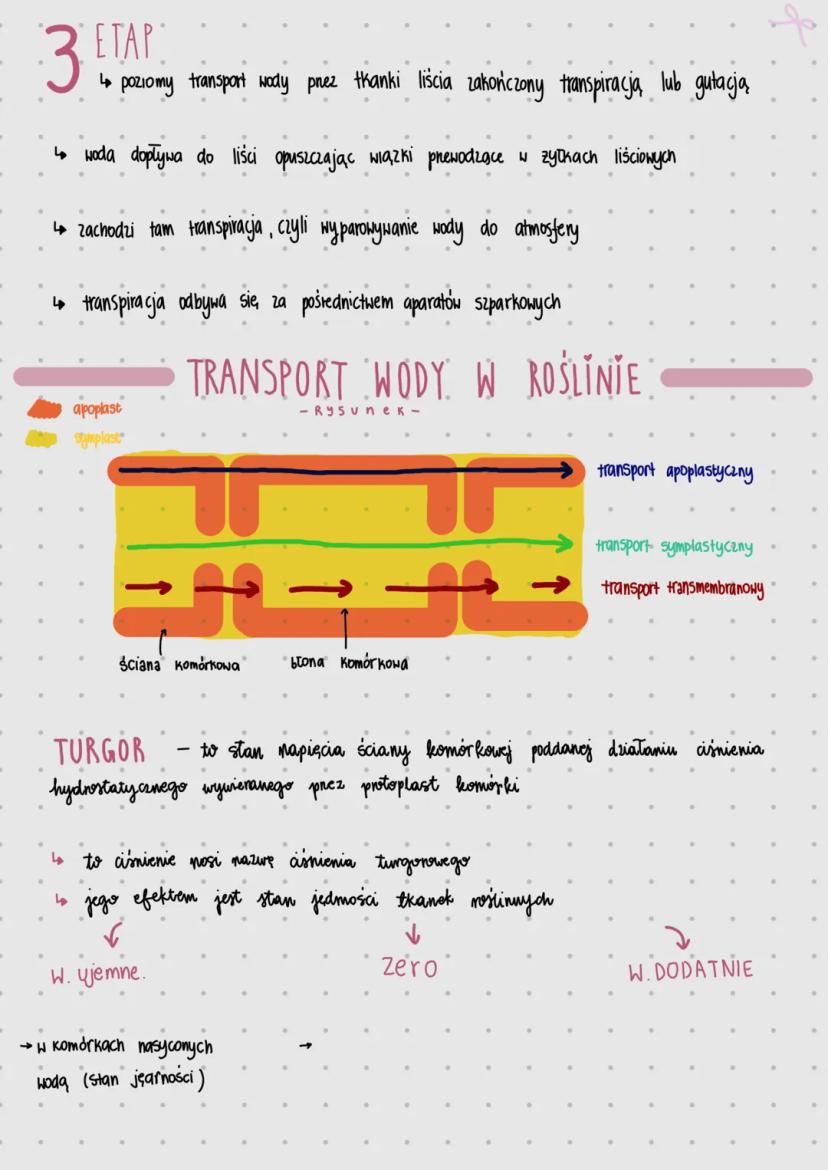 3 ETAP
↳ poziomy transport wody przez tkanki liścia zakończony transpiracją lub gutacją
↳ woda dopływa do liści opuszczając wiązki przewodzące w żyłkach liściowych
↳ zachodzi tam transpiracja, czyli wyparowywanie wody do atmosfery
↳ transpiracja odbywa się za pośrednictwem aparatów szparkowych
TRANSPORT WODY W ROŚLINIE
- Rysunek -
apoplast
symplast
transport apoplastyczny
transport symplastyczny
transport transmembranowy
ściana komórkowa
błona komórkowa
TURGOR - to stan napięcia ściany komórkowej poddanej działaniu ciśnienia
hydrostatycznego wywieranego przez protoplast komórki
↳ to ciśnienie nosi nazwę ciśnienia turgorowego
↳ jego efektem jest stan jędrności tkanek roślinnych
W. ujemne.
zero
W. DODATNIE
→ w komórkach nasyconych →
wodą (stan jędrności)